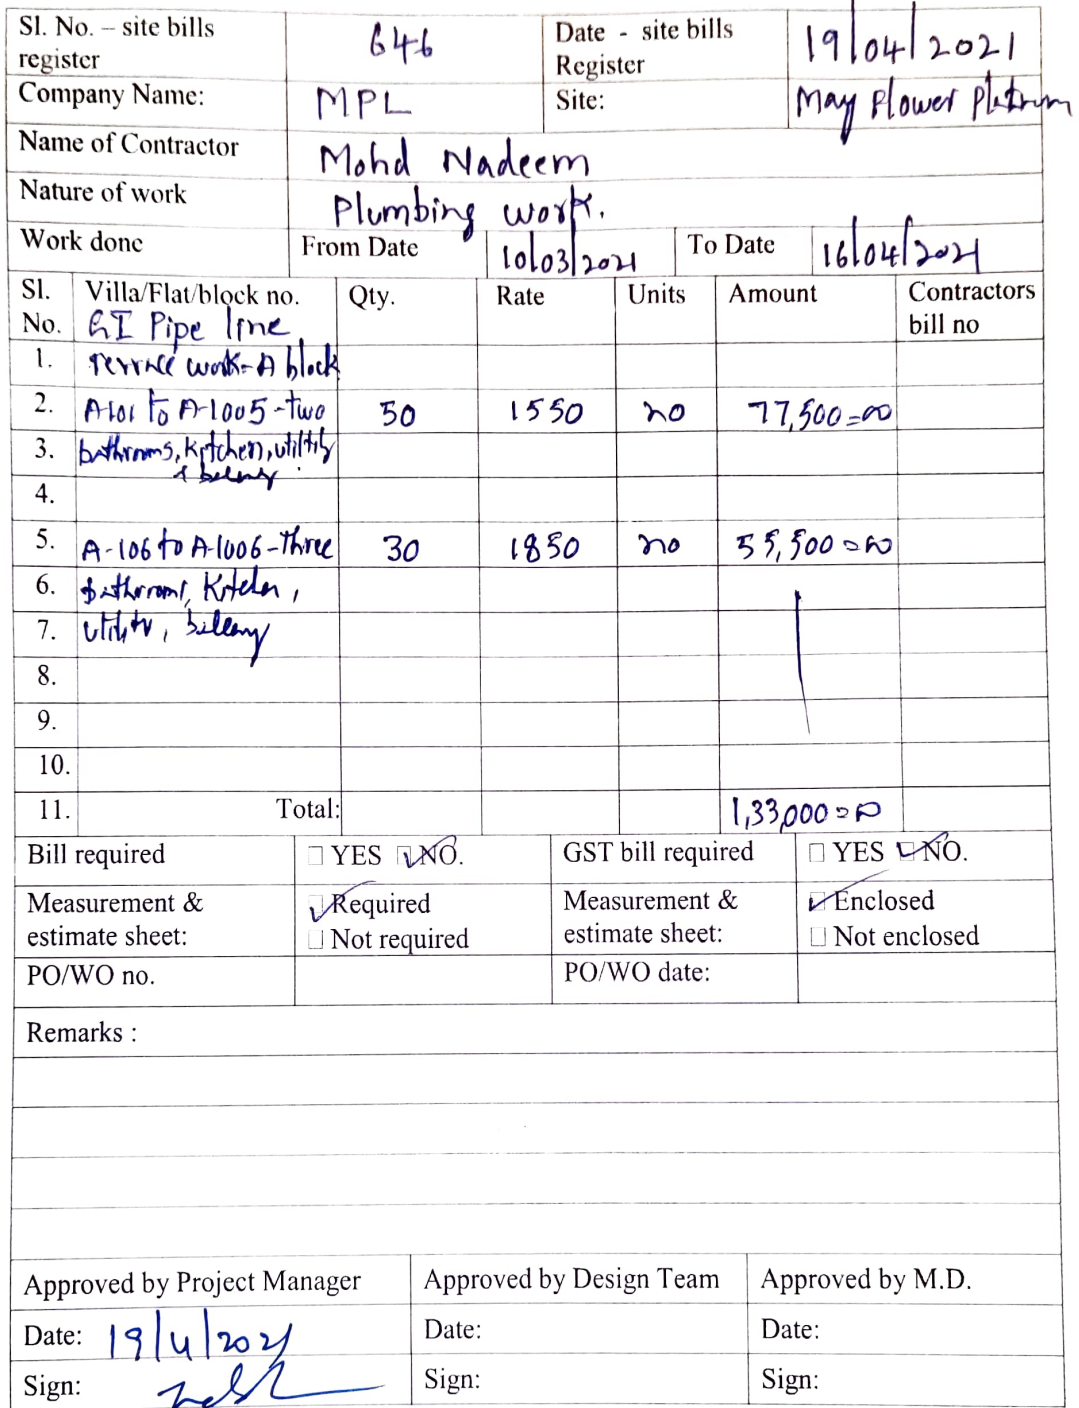 Sl. No. – site bills register 646 Date - site bills Register 19/04/2021
Company Name: MPL Site: May Flower Platinum
Name of Contractor Mohd Nadeem
Nature of work Plumbing work.
Work done From Date 10/03/2021 To Date 16/04/2021
Sl. No. Villa/Flat/block no. Qty. Rate Units Amount Contractors bill no
GI Pipe line
1. Terrace work-A block
2. A-101 to A-1005-two 50 1550 no 77,500=00
3. bathrooms, Kitchen, utility
&
4.
5. A-106 to A-1006-Three 30 1850 no 55,500=00
6. bathrooms, Kitchen,
7. utility,
8.
9.
10.
11. Total: 1,33,000=00
Bill required YES NO. GST bill required YES NO.
Measurement & estimate sheet: Required Not required Measurement & estimate sheet: Enclosed Not enclosed
PO/WO no. PO/WO date:
Remarks :
Approved by Project Manager Approved by Design Team Approved by M.D.
Date: 19/4/2021 Date: Date:
Sign: Sign: Sign: